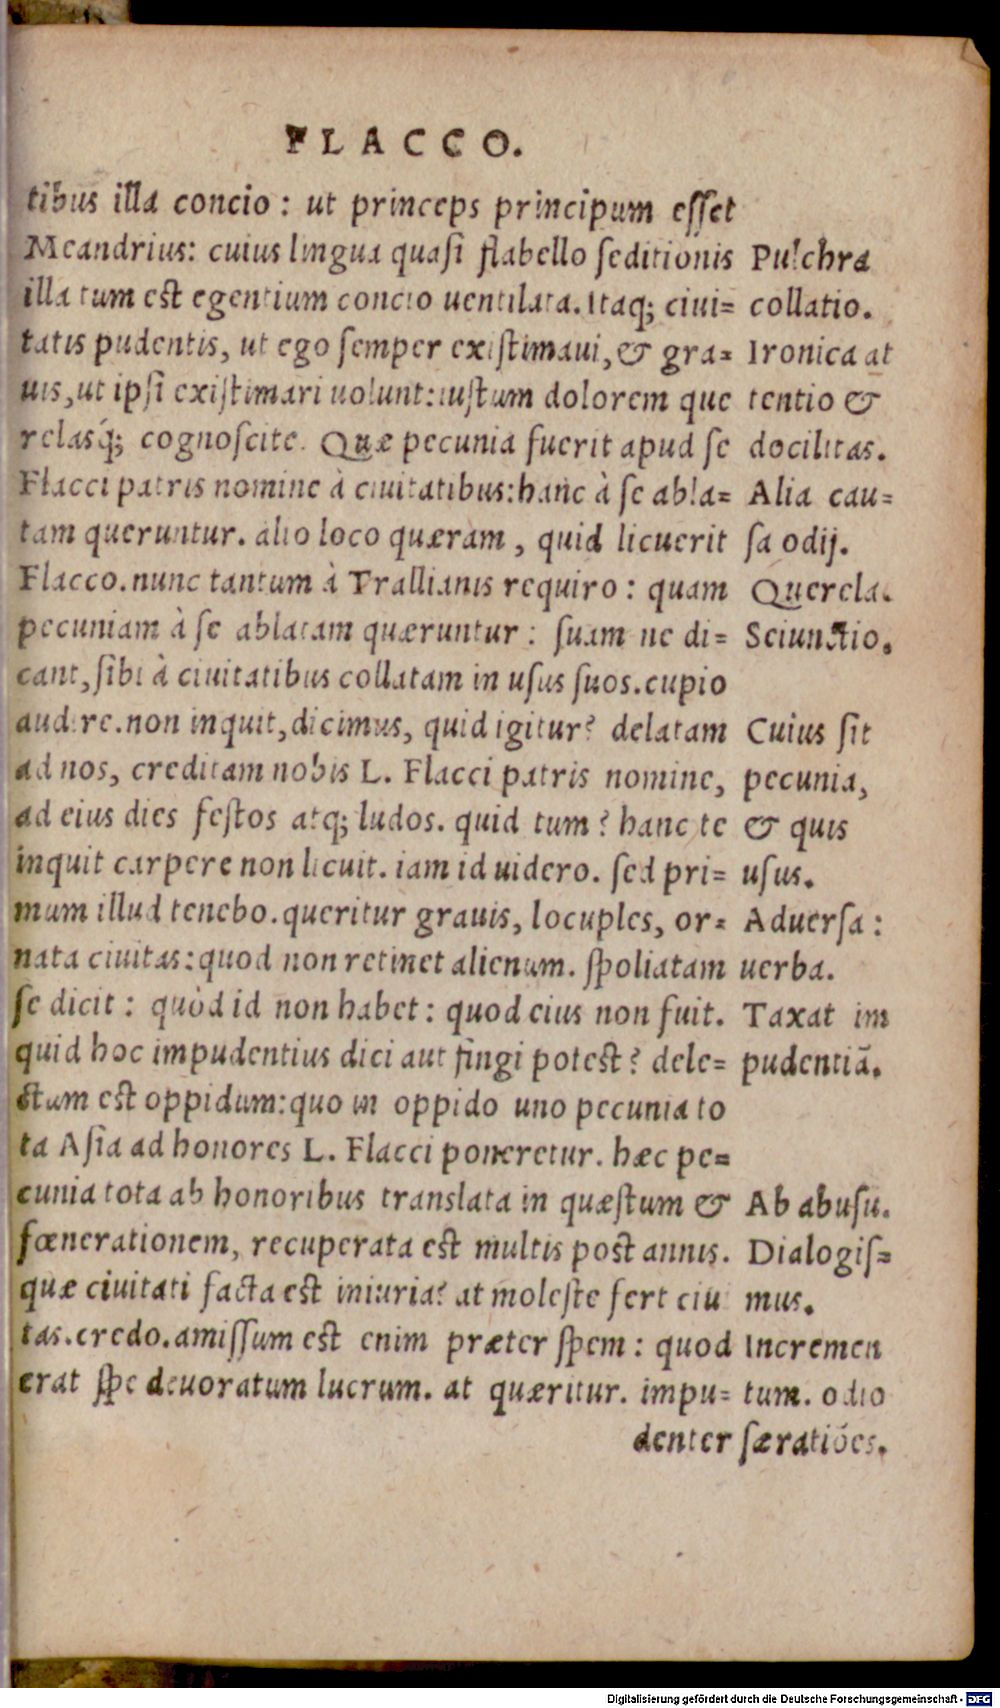 FLACCO.
tibus illa concio: ut princeps principum esset
Meandrius: cuius lingua quasi flabello seditionis
illa tum est egentium concio uentilata. Itaq; ciui=
tatis pudentis, ut ego semper existimaui, & gra=
uis, ut ipsi existimari uolunt: iustum dolorem que
relasq́; cognoscite. Quæ pecunia fuerit apud se
Flacci patris nomine à ciuitatibus: hanc à se abla=
tam queruntur. alio loco quæram, quid licuerit
Flacco. nunc tantum à Trallianis requiro: quam
pecuniam à se ablatam quæruntur: suam ne di=
cant, sibi à ciuitatibus collatam in usus suos. cupio
audire. non inquit, dicimus, quid igitur? delatam
ad nos, creditam nobis L. Flacci patris nomine,
ad eius dies festos atq; ludos. quid tum? hanc te
inquit carpere non licuit. iam id uidero. sed pri=
mum illud tenebo. queritur grauis, locuples, or=
nata ciuitas: quod non retinet alienum. spoliatam
se dicit: quòd id non habet: quod eius non fuit.
quid hoc impudentius dici aut fingi potest? dele=
ctum est oppidum: quo in oppido uno pecunia to
ta Asia ad honores L. Flacci poneretur. hæc pe=
cunia tota ab honoribus translata in quæstum &
fœnerationem, recuperata est multis post annis.
quæ ciuitati facta est iniuria? at moleste fert ciu
tas. credo. amissum est enim præter spem: quod
erat spe deuoratum lucrum. at quæritur. impu=
denter
Pulchra
collatio.
Ironica at
tentio &
docilitas.
Alia cau=
sa odij.
Querela.
Seiunctio.
Cuius sit
pecunia,
& quis
usus.
Aduersa:
uerba.
Taxat im
pudentiã.
Ab abusu.
Dialogis=
mus.
Incremen
tum. odio
særatiões.
Digitalisierung gefördert durch die Deutsche Forschungsgemeinschaft - DFG